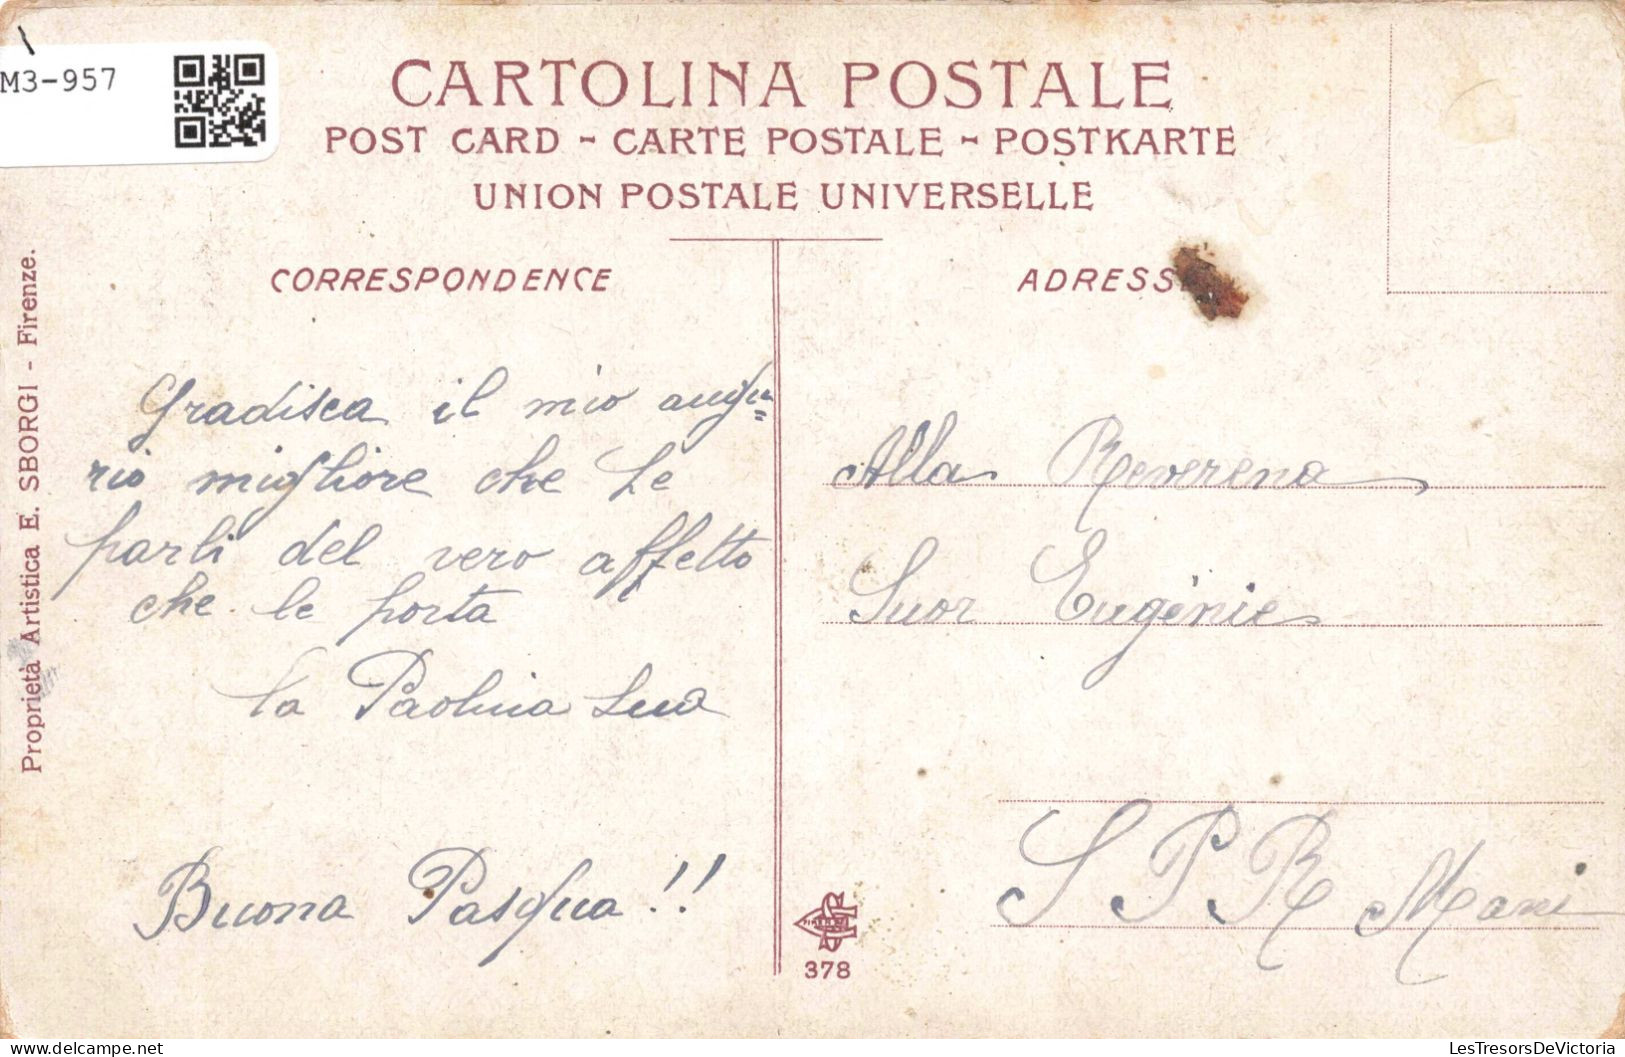 M3-957
CARTOLINA POSTALE
POST CARD - CARTE POSTALE - POSTKARTE
UNION POSTALE UNIVERSELLE
CORRESPONDENCE
Gradisca il mio augu=
rio migliore che Le
parli del vero affetto
che le porta
la Paolina Sua
Buona Pasqua!!
Proprietà Artistica E. SBORGI - Firenze.
ADRESS
Alla Reverena
Suor Eugénie
S P R Mani
378
LesTresorsDeVictoria.com